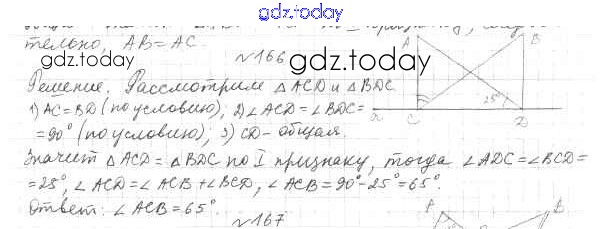 gdz.today
тельно, AB = AC.
gdz.today
№166
gdz.today
Решение. Рассмотрим △ACD и △BDC
1) AC = BD (по условию); 2) ∠ACD = ∠BDC =
= 90° (по условию); 3) CD - общая.
A B
25°
a C D
Значит △ACD = △BDC по I признаку, тогда ∠ADC = ∠BCD =
= 25°, ∠ACD = ∠ACB + ∠BCD, ∠ACB = 90° - 25° = 65°.
Ответ: ∠ACB = 65°.
gdz.today
№167
P B